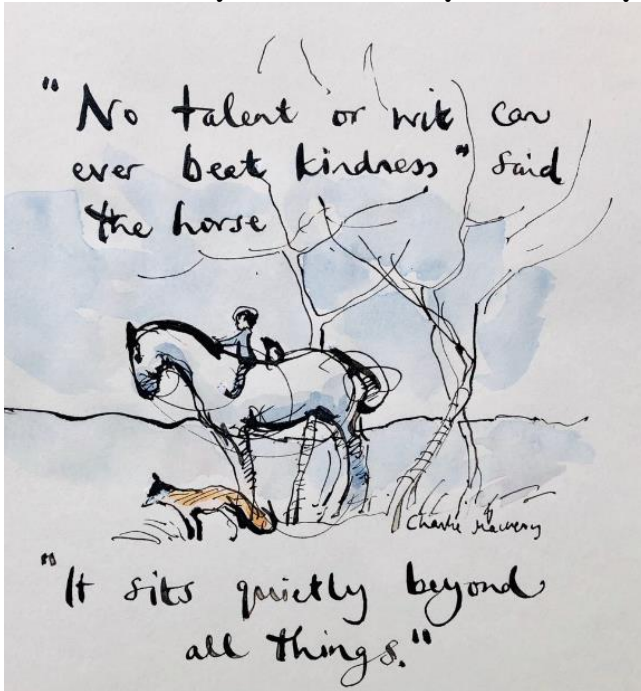 "No talent or wit can
ever beat kindness" said
the horse
Charlie Mackesy
"It sits quietly beyond
all things."